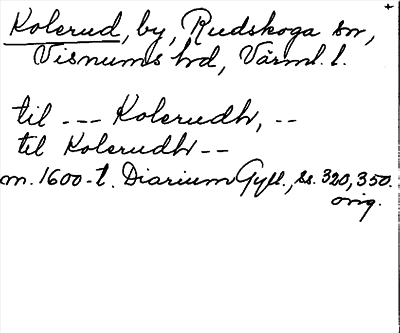 Kolerud, by, Rudskoga sn,
Visnums hd, Värml. l.
til --- Kolerudh, --
tel Kolerudh --
m. 1600-t. Diarium Gyll., ss. 320, 350.
orig.